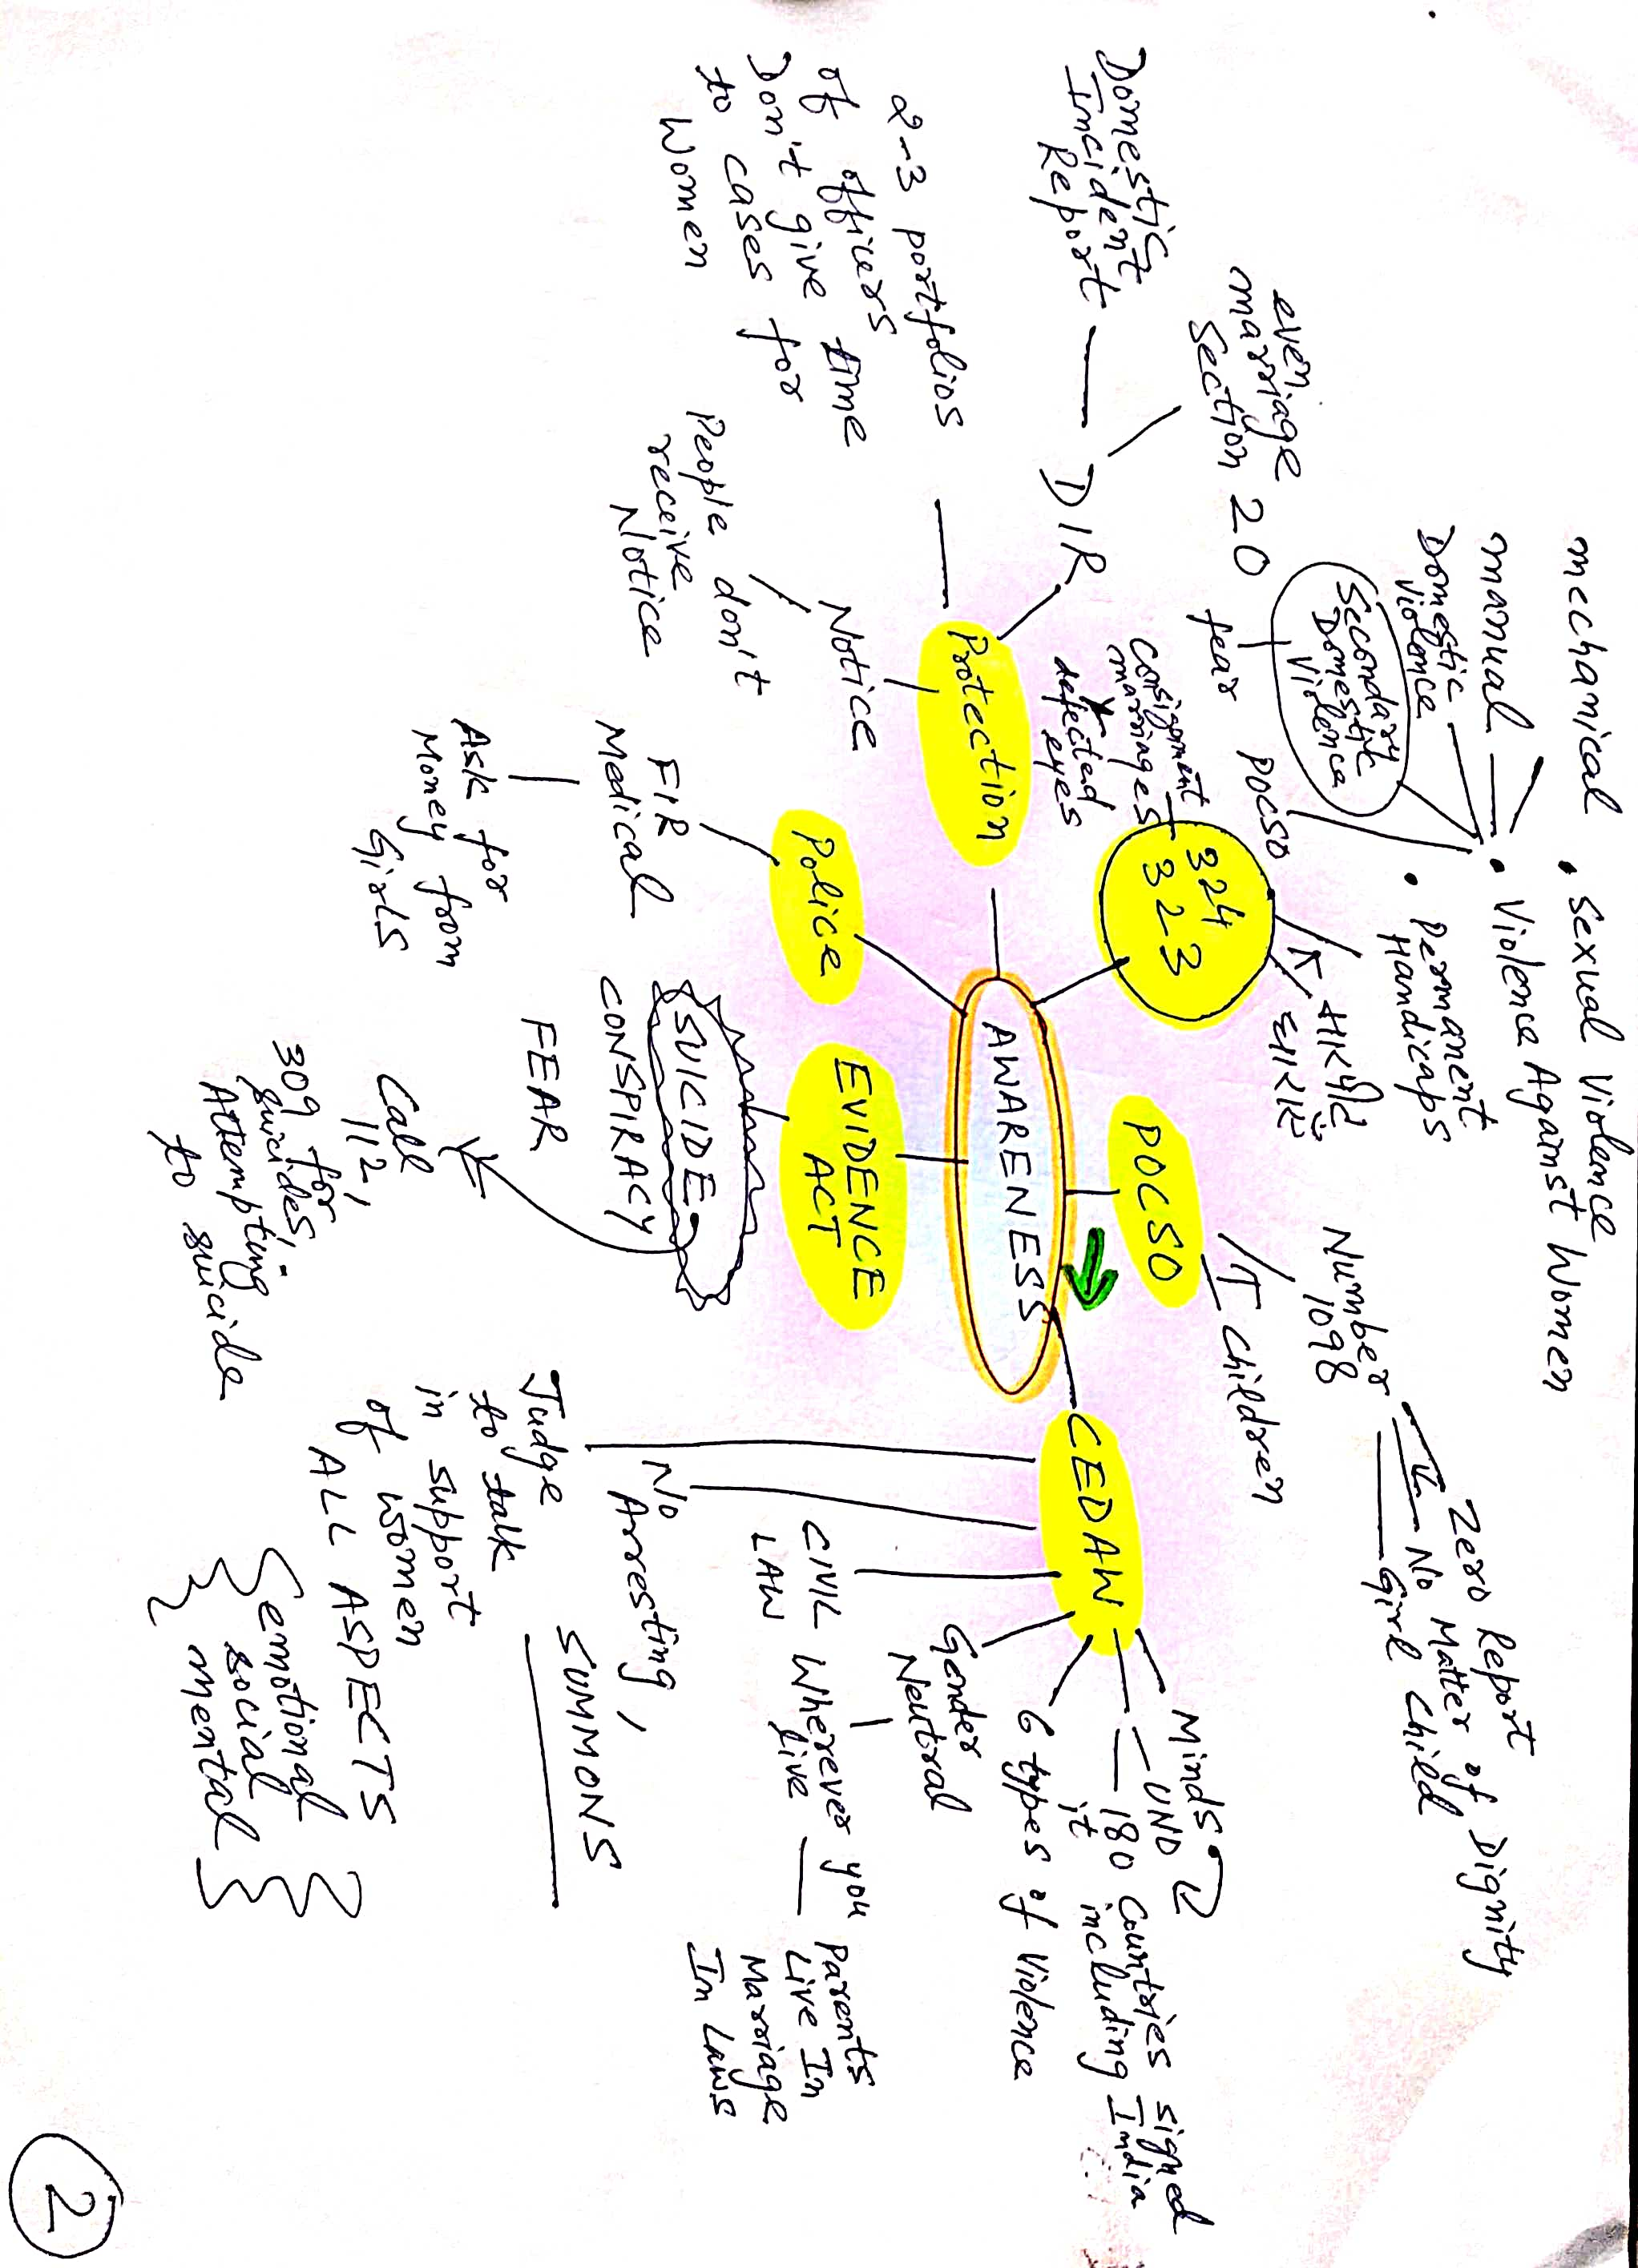 mechanical
manual
Domestic
Violence
Secondary
Domestic
Violence
fear
• Sexual Violence
• Violence Against Women
• Permanent
Handicaps
POCSO
324
323
Consignment
marriages
defected
eyes
even
marriage
Section 20
Domestic
Incident
Report
DIR
Protection
2-3 portfolios
of officers
Don't give time
to cases for
Women
Notice
People don't
receive
Notice
Police
FIR
Medical
Ask for
Money from
Girls
AWARENESS
EVIDENCE
ACT
SUICIDE
CONSPIRACY
FEAR
Call
112,
309 for
suicides,
Attempting
to suicide
POCSO
Children
Number
1098
Zero Report
No Matter of Dignity
Girl Child
CEDAW
Minds
UNO
180 Countries signed
it including India
6 types of Violence
Gender
Neutral
Wherever you
live
Parents
Live In
Marriage
In Laws
CIVIL
LAW
No
Arresting,
SUMMONS
Judge
to talk
in support
of women
ALL ASPECTS
emotional
social
mental
2